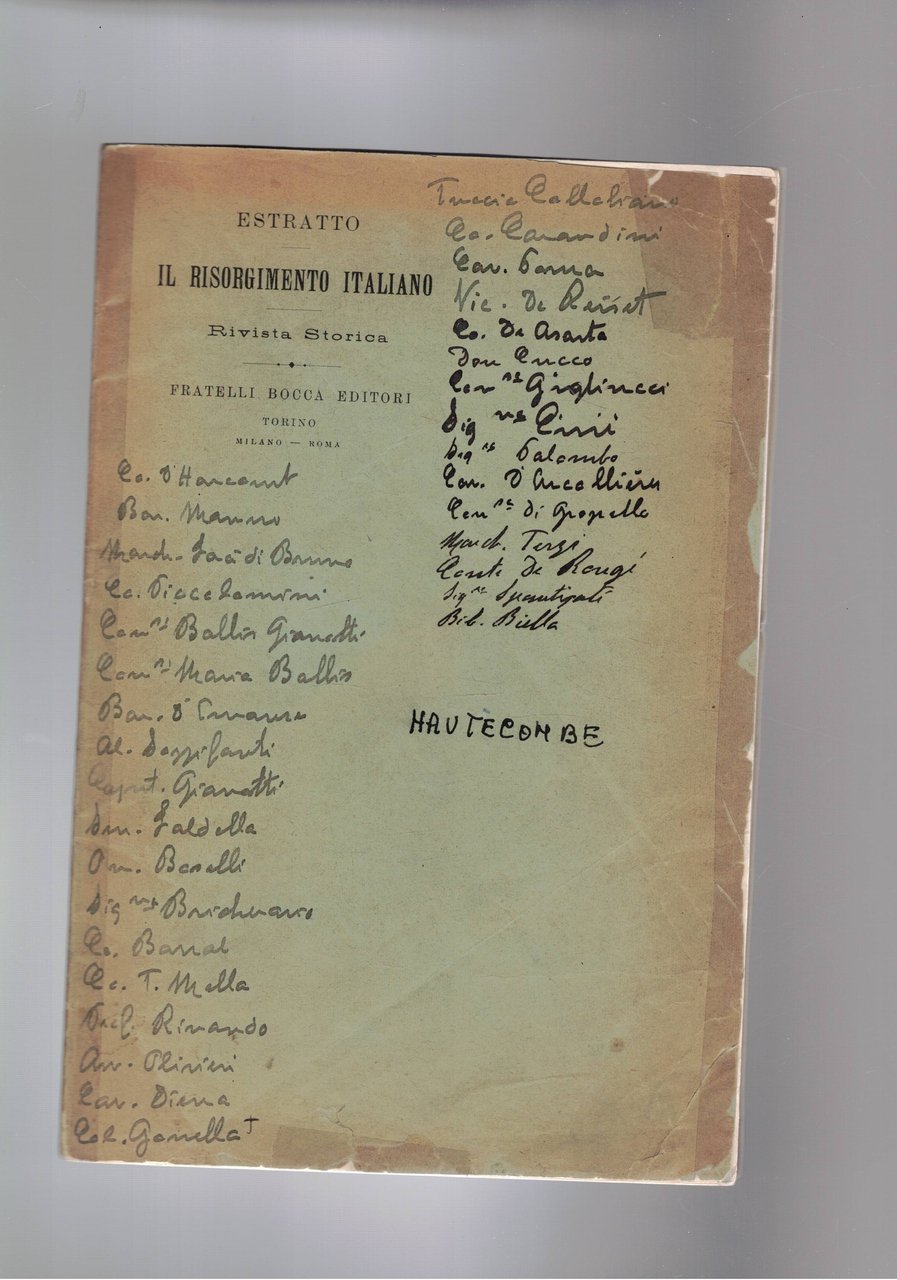 ESTRATTO
IL RISORGIMENTO ITALIANO
Rivista Storica
FRATELLI BOCCA EDITORI
TORINO
MILANO — ROMA
Co. D'Harcourt
Bar. Manno
March. Faà di Bruno
Co. Piccolomini
Con.sa Ballis Gianotti
Con.sa Maria Ballis
Bar. D'
Al.
Capit. Gianotti
Sen. Faldella
On. Boselli
Sig.na
Co. Barral
Co. T. Mella
Prof. Rinaudo
Av. Olivieri
Cav. Diena
Col. Gonella †
Co. Carandini
Cav.
Vic. De Reiset
Co. De Asarta
Don Cucco
Con.sa Gigliucci
Sig.na
Sig.na Palombo
Cav. D'Arcollières
Con.sa Di Gropello
March. Terzi
Conte De Rougé
Sig.na
Bib. Biella
HAUTECOMBE